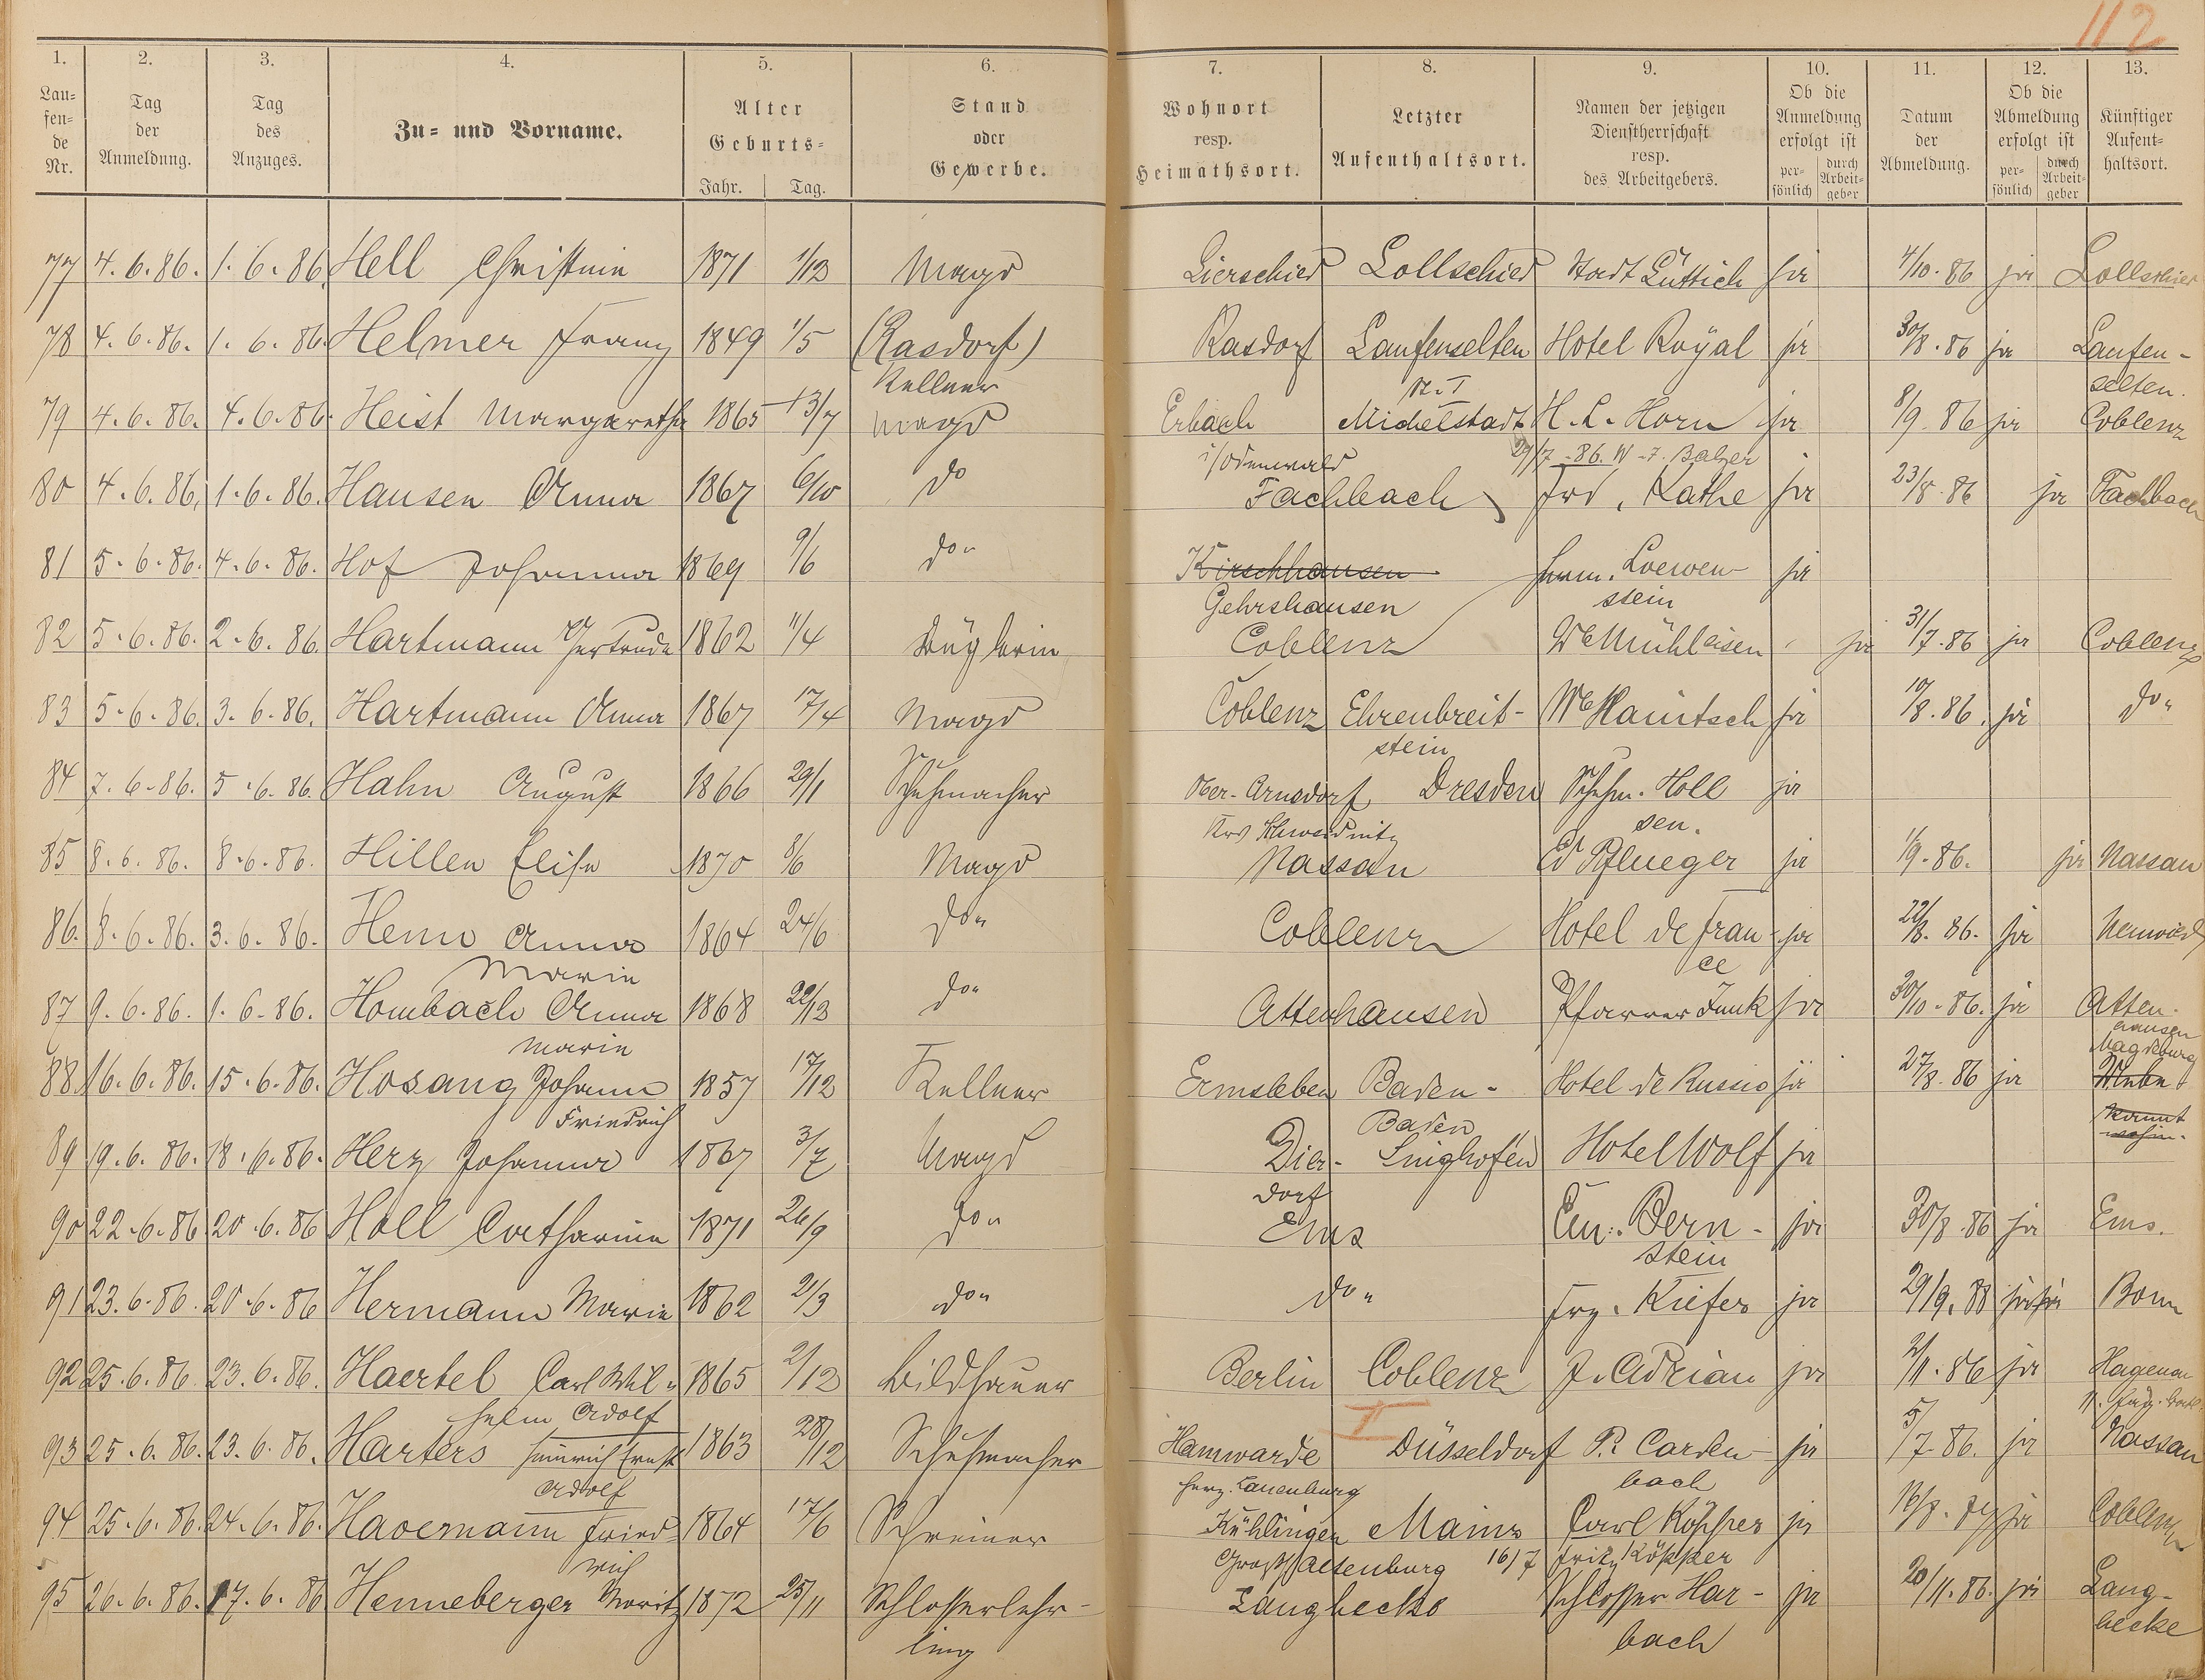 112
1. 2. 3. 4. 5. 6. 7. 8. 9. 10. 11. 12. 13.
Lau=
fen=
de
Nr.
Tag
der
Anmeldung.
Tag
des
Anzuges.
Zu= und Vorname.
Alter
Geburts=
Jahr. Tag.
Stand
oder
Gewerbe.
Wohnort
resp.
Heimathsort.
Letzter
Aufenthaltsort.
Namen der jetzigen
Dienstherrschaft
resp.
des Arbeitgebers.
Ob die
Anmeldung
erfolgt ist
per=
sönlich
durch
Arbeit=
geber
Datum
der
Abmeldung.
Ob die
Abmeldung
erfolgt ist
per=
sönlich
durch
Arbeit=
geber
Künftiger
Aufent=
haltsort.
77 4.6.86. 1.6.86 Hell Christine 1871 1/12 Magd Lierschied Lollschied Stadt Lüttich ja 4/10.86 ja Lollschied
78 4.6.86. 1.6.86. Helmer Franz 1849 1/5 (Rasdorf) Rasdorf Laufenselten Hotel Royal ja 30/8.86 ja Laufen-
Kellner selten.
79 4.6.86. 4.6.86. Heist Margaretha 1865 13/7 Magd Erbach Michelstadt H. L. Horn ja 8/9.86 ja Coblenz
i/Odenwald 29/7.86. Balzer
80 4.6.86. 1.6.86. Hausen Anna 1867 6/10 do Fachbach Frd. Kathe ja 23/8.86 ja Fachbach
81 5.6.86. 4.6.86. Hof Johanna 1869 9/6 do" Kirschhausen Herm. Loewen- ja
Gehrshausen stein
82 5.6.86. 2.6.86. Hartmann Gertrude 1862 11/4 Büglerin Coblenz We Mühleisen ja 31/7.86 ja Coblenz
83 5.6.86. 3.6.86. Hartmann Anna 1867 17/4 Magd Coblenz Ehrenbreit- We ja 10/8.86. ja do"
stein
84 7.6.86. 5.6.86. Hahn August 1866 29/1 Schuhmacher Ober-Arnsdorf Dresden Schuhm. Holl ja
Krs Schweidnitz sen.
85 8.6.86. 8.6.86. Hillen Elise 1870 8/6 Magd Nassau Ed Pflueger ja 1/9.86. ja Nassau
86. 8.6.86. 3.6.86. Anna 1864 24/6 do" Coblenz Hotel de Fran- ja 22/8.86. ja Neuwied
Marie ce
87 9.6.86. 1.6.86. Hombach Anna 1868 22/12 do" Attenhausen Pfarrer Funk ja 30/10.86. ja Atten-
Marie hausen
88. 16.6.86. 15.6.86. Hosang Johann 1857 17/12 Kellner Ermsleben Baden- Hotel de Russie ja 27/8.86 ja Magdeburg
Friedrich Baden Unbe
kannt
wohin.
89 19.6.86. 18.6.86. Herz Johanna 1867 3/7 Magd Dier- Singhofen Hotel Wolf ja
dorf
90 22.6.86 20.6.86 Holl Catharine 1871 26/9 do" Ems Em. Bern- ja 30/8.86 ja Ems.
stein
91 23.6.86. 20.6.86 Hermann Marie 1862 2/3 do" do" Frz. Kiefer ja 29/9.88 ja ja Bonn
92 25.6.86. 23.6.86. Haertel Carl Wil- 1865 2/12 Bildhauer Berlin Coblenz J. Adrian ja 2/11.86 ja Hagenau
helm Adolf
II
93 25.6.86. 23.6.86. Harters Heinrich Ernst 1863 28/12 Schuhmacher Hamwarde Düsseldorf P. Carden- ja 5/7.86. ja Nassau
Adolf Herz. Lauenburg bach
94 25.6.86. 24.6.86. Havemann Fried- 1864 17/6 Schreiner Kühlingen Mainz Carl Köpper ja 16/8. ja Coblenz
rich Altenburg 16/7 Fritz Köpper
95 26.6.86. 17.6.86 Henneberger Moritz 1872 25/11 Schlosserlehr- Langhecke Schlosser Har- ja 20/11.86. ja Lang-
ling bach hecke